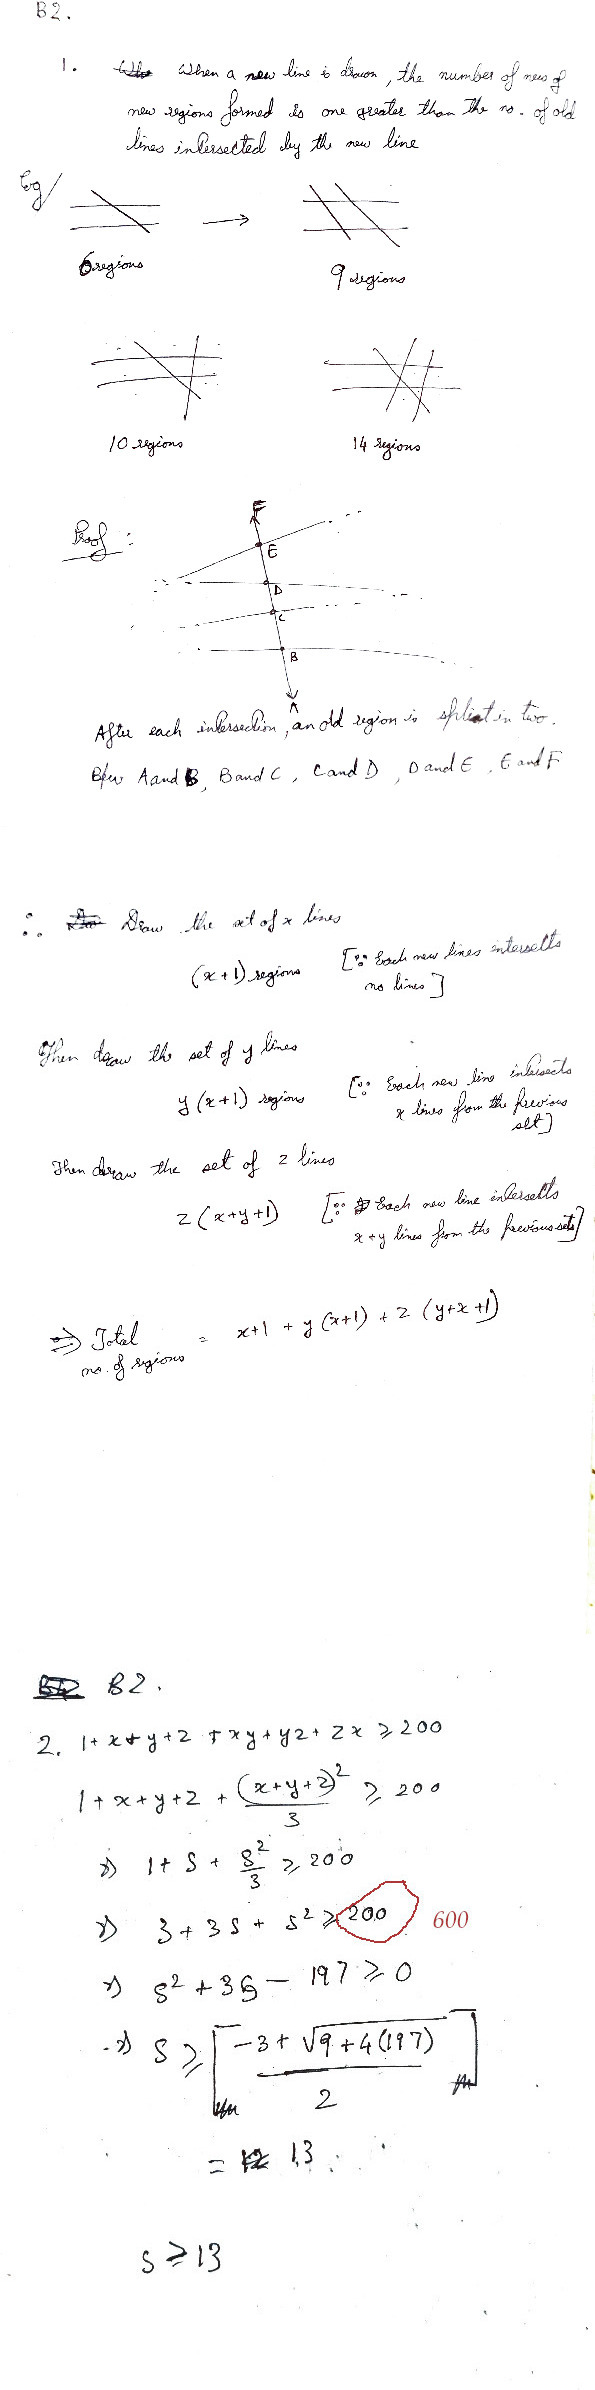 B2.
1. When a new line is drawn, the number of new of
new regions formed is one greater than the no. of old
lines intersected by the new line
Eg/
6 regions
9 regions
10 regions
14 regions
Proof :
F
E
D
C
B
A
After each intersection, an old region is split in two.
B/w A and B, B and C, C and D, D and E, E and F
∴ Draw the set of x lines
(x+1) regions [∵ Each new lines intersects
no lines]
Then draw the set of y lines
y(x+1) regions [∵ Each new line intersects
x lines from the previous
set]
Then draw the set of z lines
z(x+y+1) [∵ Each new line intersects
x+y lines from the previous sets]
⇒ Total
no. of regions = x+1 + y(x+1) + z(y+x+1)
B2.
2. 1+x+y+z+xy+yz+zx ≥ 200
1+x+y+z + (x+y+z)²/3 ≥ 200
⇒ 1+S+ S²/3 ≥ 200
⇒ 3+3S+S² ≥ 200 600
⇒ S²+3S-197 ≥ 0
⇒ S ≥ ⌈(-3+√(9+4(197)))/2⌉
= 13
S ≥ 13